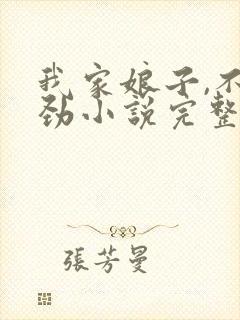 我家娘子,不
劲小説完整
張芳曼